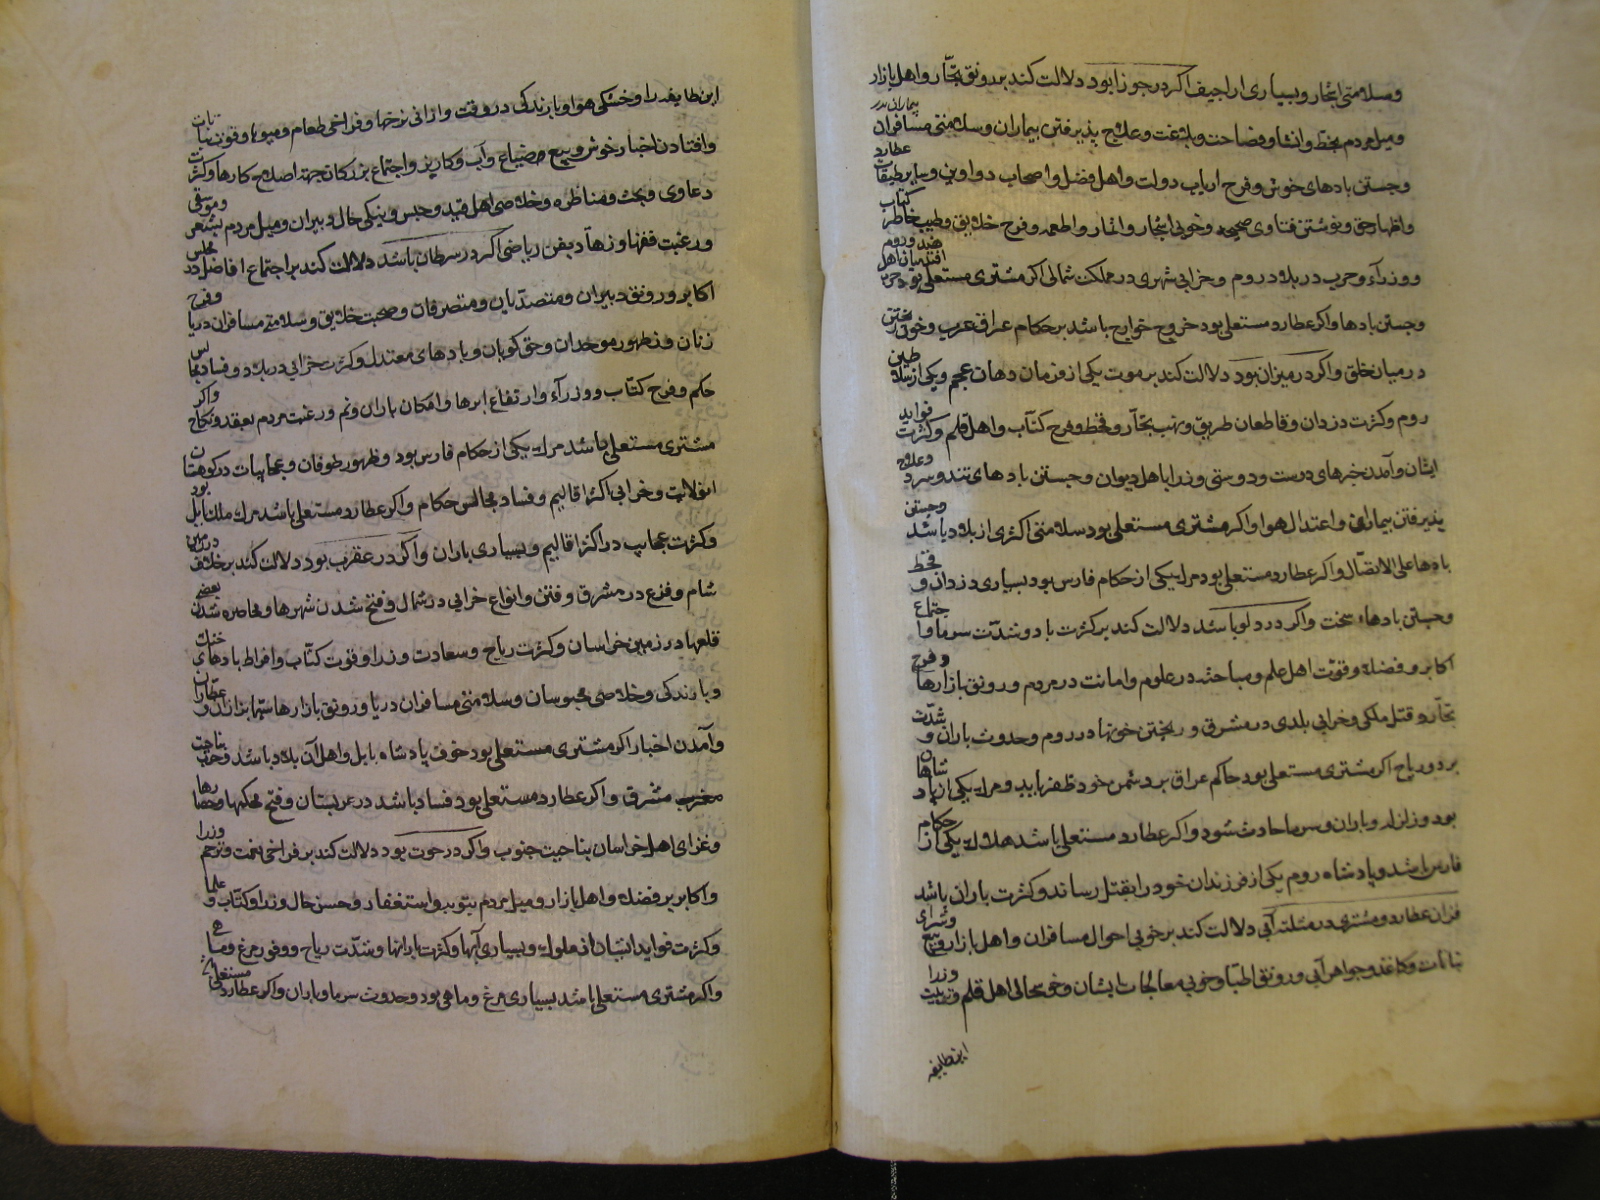 وسلامتی اشجار و بسیاری اراجیف اکر در جوزا بود دلالت کند بر رونق تجّار و اهل بازار
و میل مردم بخط و انشا و فصاحت و بلاغت و علاج پذیرفتن بیماران و سلامتی مسافران
و جستن بادهای خوش و فرح ارباب دولت و اهل فضل و اصحاب دواوین و طبقات
و اظهار حق و نوشتن فتاوی صحیحه و خوبی اشجار و اثمار و اطعمه و فرح خلایق و طیب خاطر کتاب
و وزرآء و حرب در بلاد روم و خرابی شهری در مملکت شمالی اکر مشتری مستعلی بود
و جستن بادها و اکر عطارد مستعلی بود خروج خوارج باشد بر حکام عراق عرب و خون ریختن
در میان خلق و اکر در میزان بود دلالت کند بر موت یکی از فرمان دهان عجم و یکی از سلاطین
روم و کثرت دزدان و قاطعان طریق و نهب تجّار و قحط و فرح کتّاب و اهل قلم و کثرت فواید
ایشان و آمدن خبرهای درست و دوستی وزرا باهل دیوان و جستن بادهای تند و سرد و علاج
پذیرفتن بیماران و اعتدال هوا و اکر مشتری مستعلی بود سلامتی اکثری از بلاد باشد و جستن
بادها علی الاتصال و اکر عطارد مستعلی بود مرك یکی از حکام فارس بود بسیاری دزدان و قحط
و جستن بادهاء سخت و اکر در دلو باشد دلالت کند بر کثرت باد و شدّت سرما و اجتماع
اکابر و فضلا و قوّت اهل علم و مباحثه در علوم و امانت در مردم و رونق بازارها و فرح
تجّار و قتل ملکی و خرابی بلدی در مشرق و ریختن خونها در روم و حدوث باران و شدّت
برد و ریاح اکر مشتری مستعلی بود حاکم عراق بر دشمن خود ظفر یابد و مرك یکی از پادشاهان
بود و زلزله و باران و سرما حادث شود و اکر عطارد مستعلی باشد هلاك یکی از حکام
فارس باشد و پادشاه روم یکی از فرزندان خود را بقتل رساند و کثرت باران باشد
قران عطارد و مشتری در مثلثه آبی دلالت کند بر خوبی احوال مسافران و اهل بازار و بیع و شرای
نباتات و کاغذ و جواهر آبی و رونق اطبّا و خوبی معالجات ایشان و خوشحالی اهل قلم و تربیت وزرا
این طایفه
این طایفه را و خشکی هوا و بارندکی در وقت و ارزانی نرخها و فراخی طعام و میوها و قوّت نباتات
و افتادن اخبار خوش و بیع ضیاع و آب و کاریز و اجتماع بزرکان جهة اصلاح کارها و کثرت
دعاوی و بحث و مناظره و خلاصی اهل قید و حبس و نیکی حال دبیران و میل مردم بشعر و موسقی
و رغبت فقها و زهّاد بفن ریاضی اکر در سرطان باشد دلالت کند بر اجتماع افاضل در مجلس
اکابر و رونق دبیران و متصدّیان و متصرفات و صحبت خلایق و سلامتی مسافران دریا و فرح
زنان و ظهور موحدان و حق کویان و بادهای معتدل و کثرت خرابی در بلاد و فساد
حکم و فرح کتّاب و وزرآء و ارتفاع ابرها و امکان باران و نم و رغبت مردم بعقد و نکاح و اکر
مشتری مستعلی باشد مرك یکی از حکام فارس بود و ظهور طوفان و عجایبات در کوهستان
و خرابی اکثر اقالیم و فساد مجالس حکام و اکر عطارد مستعلی باشد مرك ملك بابل بود
و کثرت عجایب در اکثر اقالیم و بسیاری باران و اکر در عقرب بود دلالت کند بر خلاف در زمین
شام و فزع در مشرق و فتن و انواع خرابی در شمال و فتح شدن شهرها و محاصره شدن بعضی
قلعها در زمین خراسان و کثرت ریاح و سعادت وزرا و قوت کتّاب و افراط بادهای خنك
و بارندکی و خلاصی محبوسان و سلامتی مسافران دریا و رونق بازارها سیّما بزازان و عطّاران
و آمدن اخبار اکر مشتری مستعلی بود خوف پادشاه بابل و اهل آن بلاد باشد و حرب بناحیت
مشرق و اکر عطارد مستعلی بود فساد باشد در عربستان و فتح محکمها و حصارها
و غزای اهل خراسان بناحیت جنوب و اکر در حوت بود دلالت کند بر فراخی نعمت و ترحم وزرا
و اکابر بر فضلا و اهل بازار و میل مردم بتوبه و استغفار و حسن حال وزرا و کتّاب و علما
و کثرت فواید ایشان از ملوك و بسیاری آبها و کثرت بارانها و شدّت ریاح و وفور مرغ و ماهی
و اکر مشتری مستعلی باشد بسیاری مرغ و ماهی بود و حدوث سرما و باران و اکر عطارد مستعلی